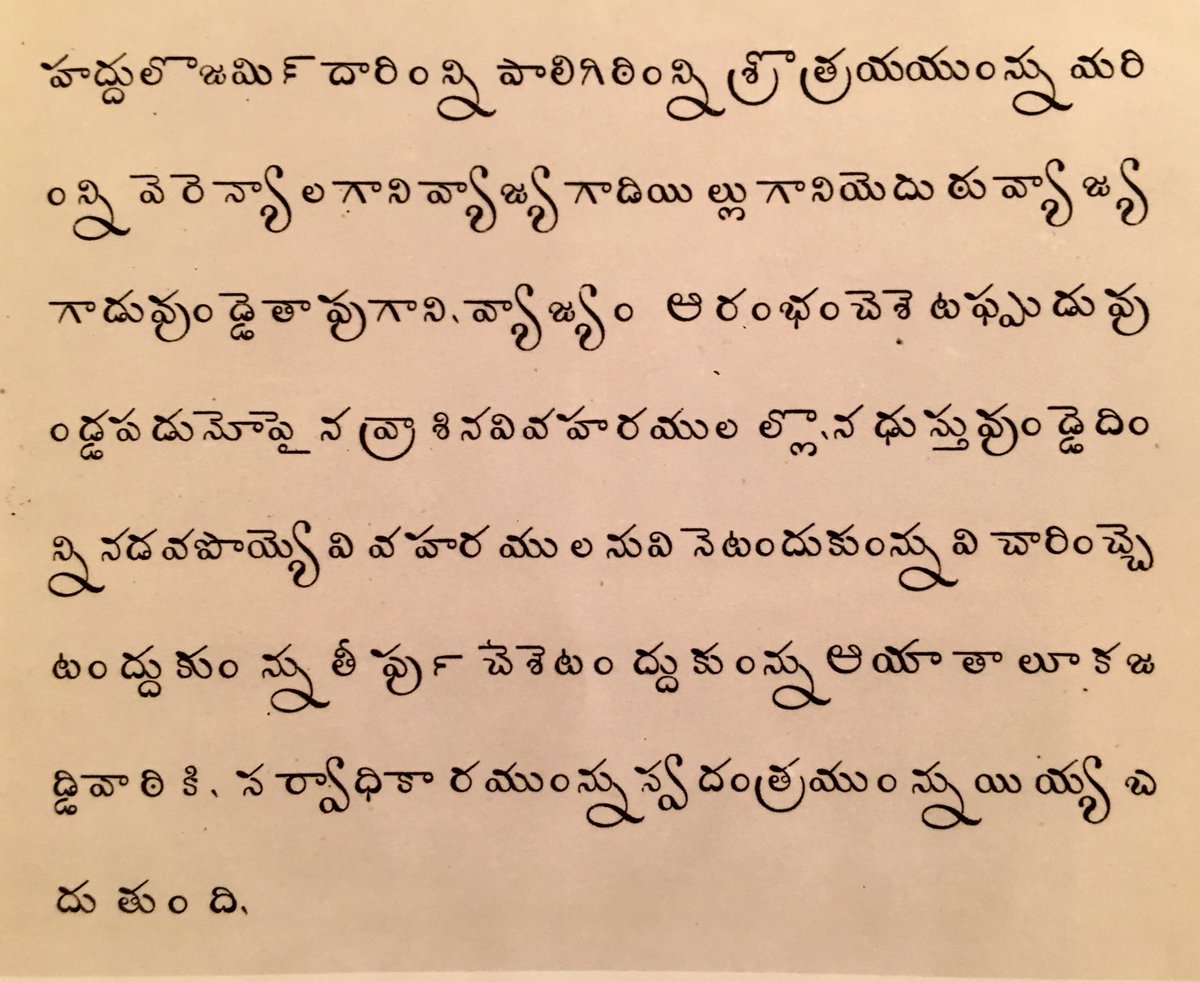 హద్దులొజమిౕదారింన్ని పాలిగిరింన్ని శ్రొత్రయయుంన్ను మరి
ంన్ని వెరెన్యాలగాని వ్యాజ్యగాడియిల్లుగానియెదురువ్యాజ్య
గాడువుండ్డెతావుగాని. వ్యాజ్యం ఆరంభంచెశెటప్పుడువు
ండ్డపడునోపైన వ్రాశినవివహరములల్లొ. నడుస్తువుండ్డెదిం
న్ని నడవపొయ్యెవివహరములనువినెటందుకుంన్ను విచారించ్చె
టంద్దుకుంన్ను తీర్పు చెశెటంద్దుకుంన్ను ఆయాతాలూకజ
డ్జివారికి. సర్వాధికారముంన్ను స్వదంత్రముంన్ను యియ్యబ
డుతుంది.